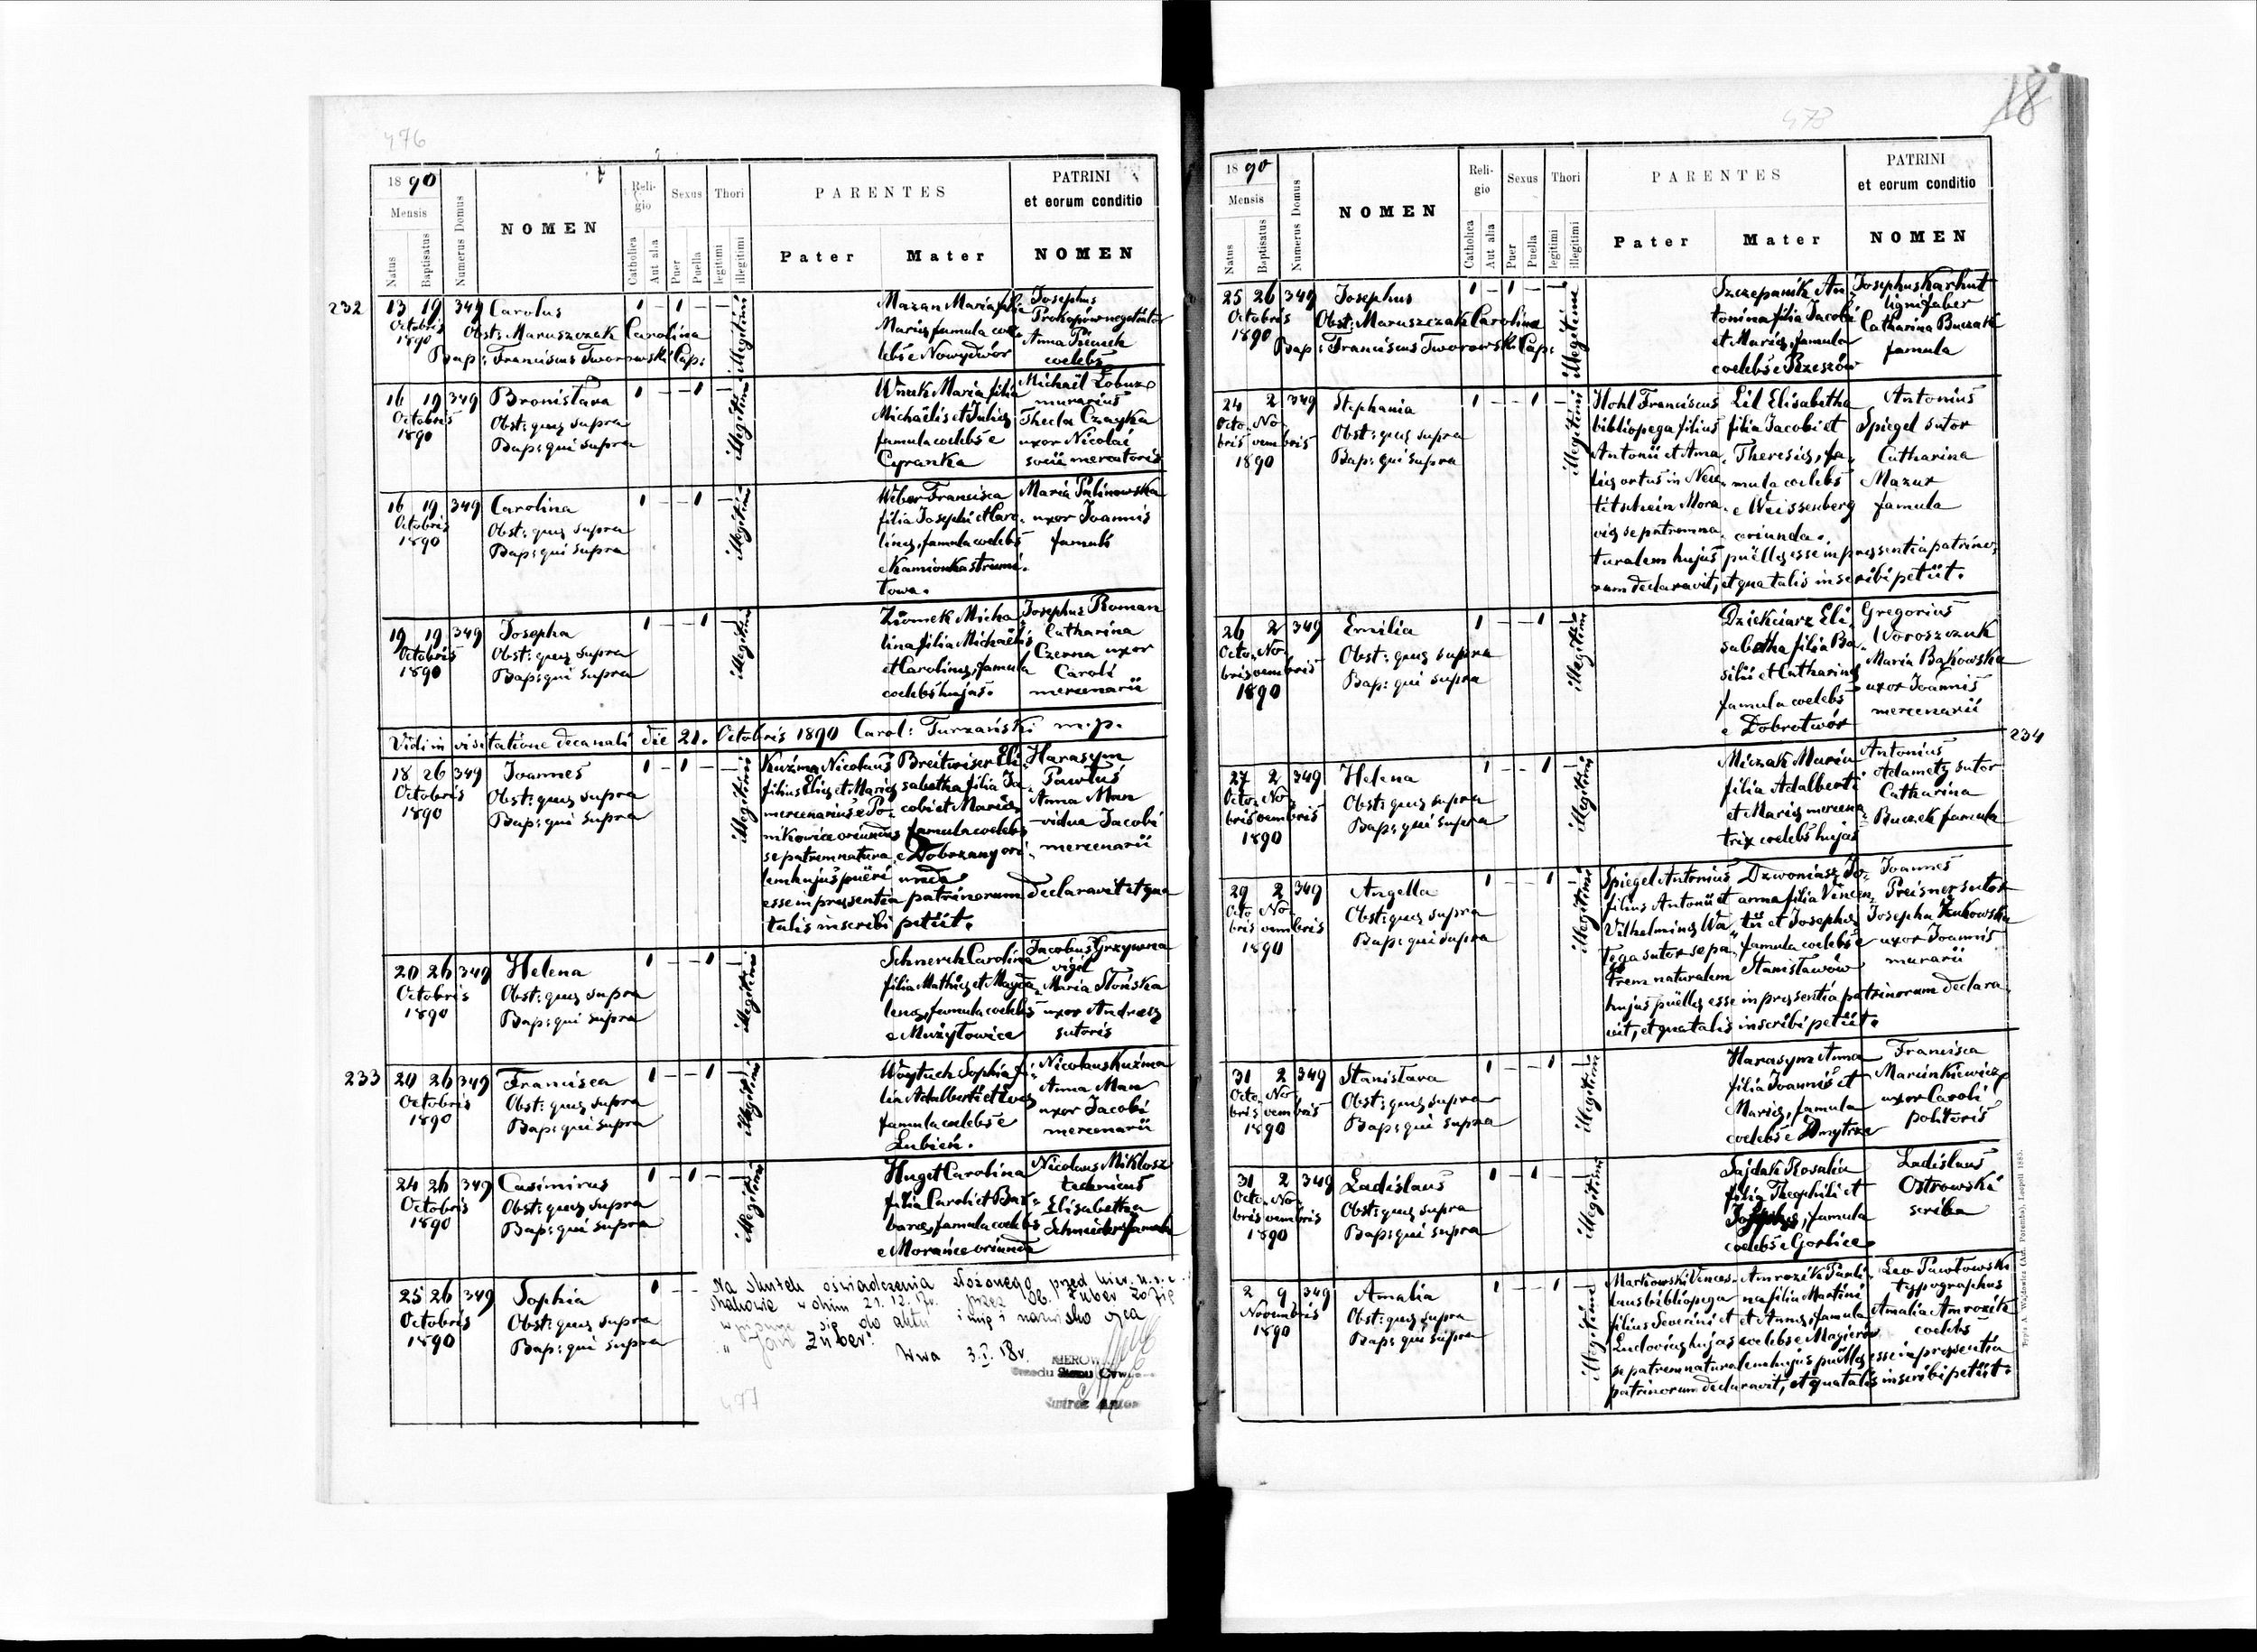 476
18 90
Mensis
Natus
Baptisatus
Numerus Domus
NOMEN
Religio
Catholica
Aut alia
Sexus
Puer
Puella
Thori
legitimi
illegitimi
PARENTES
Pater
Mater
PATRINI
et eorum conditio
NOMEN
232
13 19 349 Carolus
Octobris
1890
Obst: Maruszczak Carolina
Bap: Franciscus Tworowski Cap:
illegitimi
Mazan Maria filia
Mariæ famula coe
lebs e Nowydwór
Josephus
Prokopów negotiator
Anna
coelebs
16 19 349 Bronisława
Octobris
1890
Obst: quæ supra
Bap: qui supra
illegitimi
Wnuk Maria filia
Michaëlis et Juliæ
famula coelebs e
Cyranka
Michaël Łobuz
murarius
Thecla Czayka
uxor Nicolai
socii mercatoris
16 19 349 Carolina
Octobris
1890
Obst: quæ supra
Bap: qui supra
illegitimi
Weber Francisca
filia Josephi et Caro-
linæ, famula coelebs
e Kamionka strumi-
łowa.
Maria Palinowska
uxor Joannis
famuli
19 19 349 Josepha
Octobris
1890
Obst: quæ supra
Bap: qui supra
illegitimi
Ziomek Micha
lina filia Michaëlis
et Carolinæ, famula
coelebs hujas.
Josephus Roman
Catharina
Czerna uxor
Caroli
mercenarii
Vidi in visitatione decanali die 21. Octobris 1890 Carol: Turzański m.p.
18 26 349 Joannes
Octobris
1890
Obst: quæ supra
Bap: qui supra
illegitimi
Kuźma Nicolaus
filius Eliæ et Mariæ
mercenarius e Po-
nikowice oriundus
se patrem natura
lem hujus püeri
esse in præsentia patrinorum declaravit et qua
talis inscribi petiit.
Breitwiser Eli-
sabetha filia Ja-
cobi et Mariæ
famula coelebs
e Dobrzany ori-
unda
Harasym
Pawłus
Anna Man
vidua Jacobi
mercenarii
20 26 349 Helena
Octobris
1890
Obst: quæ supra
Bap: qui supra
illegitimi
Schnerch Carolina
filia Mathiæ et Magda-
lenæ, famula coelebs
e Mużyłowice
Jacobus Grzywna
vigil
Maria Słońska
uxor Andreæ
sutoris
233
20 26 349 Francisca
Octobris
1890
Obst: quæ supra
Bap: qui supra
illegitimi
Woytuch Sophia fi-
lia Adalberti et Evæ
famula coelebs e
Lubień.
Nicolaus Kuźma
Anna Man
uxor Jacobi
mercenarii
24 26 349 Casimirus
Octobris
1890
Obst: quæ supra
Bap: qui supra
illegitimi
Huget Carolina
filia Caroli et Bar-
baræ, famula coelebs
e Morańce oriunda
Nicolaus Miklosz
technicus
Elisabetha
Schneider famula
25 26 349 Sophia
Octobris
1890
Obst: quæ supra
Bap: qui supra
Na skutek oświadczenia złożonego przed kier. u.s.c.
Makowie w dniu 21.12.17r. przez ob. Zuber Zofię
wpisuje się do aktu imię i nazwisko ojca
"Jan Zuber".
Wwa 3.I.18r.
KIEROW
Urzędu Stanu Cywil
477
18
478
18 90
Mensis
Natus
Baptisatus
Numerus Domus
NOMEN
Religio
Catholica
Aut alia
Sexus
Puer
Puella
Thori
legitimi
illegitimi
PARENTES
Pater
Mater
PATRINI
et eorum conditio
NOMEN
25 26 349 Josephus
Octobris
1890
Obst: Maruszczak Carolina
Bap: Franciscus Tworowski Cap:
illegitimi
Szczepanik An-
tonina filia Jacobi
et Mariæ, famula
coelebs e Rzeszów
Josephus Karhut
lignifaber
Catharina Buczak
famula
24 2 349 Stephania
Octobris Novembris
1890
Obst: quæ supra
Bap: qui supra
illegitimi
Hohl Franciscus
bibliopega filius
Antonii et Ama-
liæ ortus in Neu-
titschein Mora-
viæ se patrem na-
turalem hujus püellæ esse in præsentia patrino-
rum declaravit, et qua talis inscribi petiit.
Lil Elisabetha
filia Jacobi et
Theresiæ, fa-
mula coelebs
e Weissenberg
oriunda.
Antonius
Spiegel sutor
Catharina
Mazur
famula
26 2 349 Emilia
Octobris Novembris
1890
Obst: quæ supra
Bap: qui supra
illegitimi
Dziekciarz Eli-
sabetha filia Ba-
silii et Catharinæ
famula coelebs
e Dobrotwór
Gregorius
Woroszczuk
Maria Bakowska
uxor Joannis
mercenarii
234
27 2 349 Helena
Octobris Novembris
1890
Obst: quæ supra
Bap: qui supra
illegitimi
Miczak Maria
filia Adalberti
et Mariæ mercena-
trix coelebs hujas
Antonius
Adametz sutor
Catharina
Buczek famula
29 2 349 Angella
Octobris Novembris
1890
Obst: quæ supra
Bap: qui supra
illegitimi
Spiegel Antonius
filius Antonii et
Vilhelminæ Wa-
sutor se pa-
trem naturalem
hujus püellæ esse in præsentia patrinorum declara-
vit, et qua talis inscribi petiit.
Dzwoniarz Jo-
anna filia Vincen-
tii et Josephæ
famula coelebs e
Stanisławów
Joannes
Preisner sutor
Josepha Żukowska
uxor Joannis
murarii
31 2 349 Stanisława
Octobris Novembris
1890
Obst: quæ supra
Bap: qui supra
illegitimi
Harasym Anna
filia Joannis et
Mariæ, famula
coelebs e Dmytrze
Francisca
Marcinkiewicz
uxor Caroli
politoris
31 2 349 Ladislaus
Octobris Novembris
1890
Obst: quæ supra
Bap: qui supra
illegitimi
Sajdak Rosalia
filia Theophili et
Josephæ, famula
coelebs e Gorlice
Ladislaus
Ostrowski
scriba
2 9 349 Amalia
Novembris
1890
Obst: quæ supra
Bap: qui supra
illegitimi
Markowski Vinces-
laus bibliopega
filius Severini et
Ludovicæ hujas
se patrem naturalem hujus püellæ esse in præsentia
patrinorum declaravit, et qua talis inscribi petiit.
Amrozik Pauli-
na filia Martini
et Annæ, famula
coelebs e Magierów
Leo Pawłowski
typographus
Amalia Amrozik
coelebs
Typis A. Wajdowicz (Ant. Poremba), Leopoli 1885.